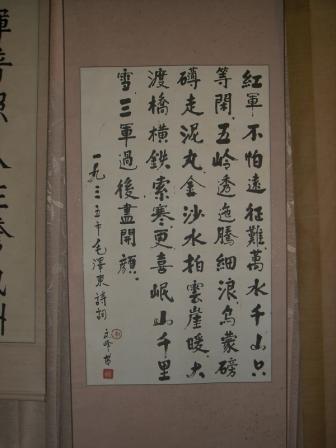 紅軍不怕遠征難。萬水千山只
等閑。五岭透迤騰細浪。乌蒙磅
礴走泥丸。金沙水拍雲崖暖。大
渡橋横鉄索寒。更喜岷山千里
雪。三軍過後盡開顔。
一九三五年毛澤東詩詞